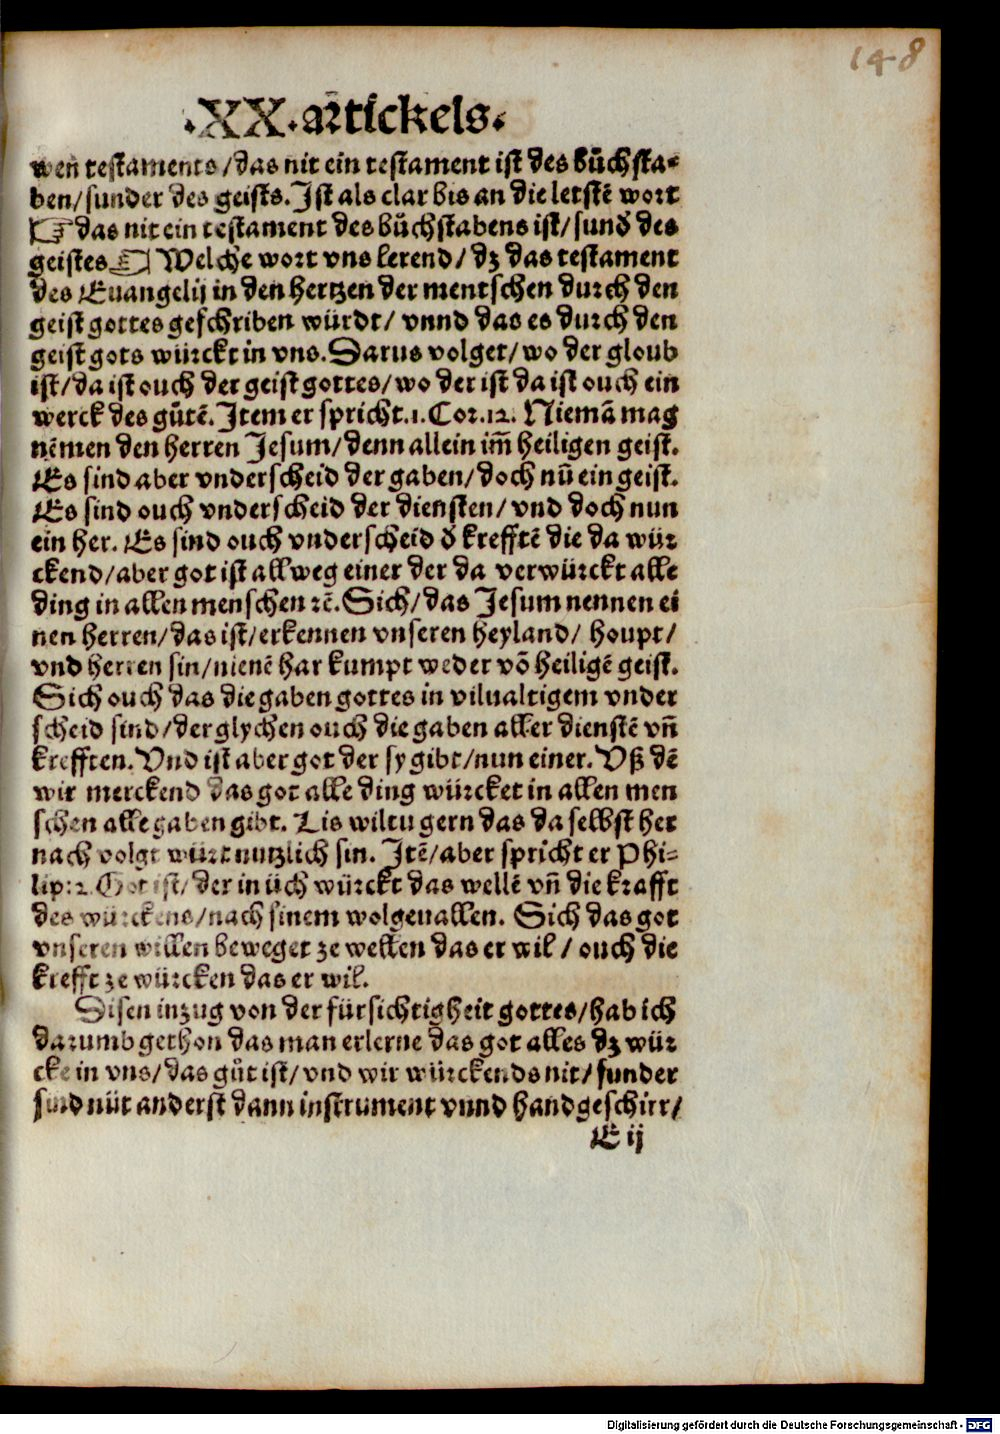 148
.XX. artickels.
wen testaments/das nit ein testament ist des bůchsta-
ben/sunder des geists. Ist als clar bis an die letstē wort
☞ das nit ein testament des bůchstabens ist/sund̕ des
geistes ☜ Welche wort vns lerend/ dz das testament
des Euangelij in den hertzen der mentschen durch den
geist gottes geschriben würdt/ vnnd das es durch den
geist gots würckt in vns. Darus volget/wo der gloub
ist/da ist ouch der geist gottes/wo der ist da ist ouch ein
werck des gůtē. Item er spricht.1.Cor.12. Niemā mag
nēmen den herren Jesum/denn allein im̄ heiligen geist.
Es sind aber vnderscheid der gaben/doch nū ein geist.
Es sind ouch vnderscheid der diensten/ vnd doch nun
ein her. Es sind ouch vnderscheid d̕ krefftē die da wür
ckend/aber got ist allweg einer der da verwürckt alle
ding in allen menschen ꝛē. Sich/das Jesum nennen ei
nen herren/das ist/erkennen vnseren heyland/ houpt/
vnd herren sin/nienē har kumpt weder vō heiligē geist.
Sich ouch das die gaben gottes in viluαltigem vnder
scheid sind/der glychen ouch die gaben aller dienstē vn̄
krefften. Vnd ist aber got der sy gibt/nun einer. Vß dē
wir merckend das got alle ding würcket in allen men
schen alle gaben gibt. Lis wiltu gern das da selbst her
nach volgt würt nutzlich sin. Itē/aber spricht er Phi-
lip: 2. Got ist/der in üch würckt das wellē vn̄ die krafft
des würckens/nach sinem wolgeuallen. Sich das got
vnseren willen beweget ze wellen das er wil / ouch die
krefft ze würcken das er wil.
Disen inzug von der fürsichtigheit gottes/hab ich
darumb gethon das man erlerne das got alles dz wür
cke in vns/das gůt ist/vnd wir würckends nit/sunder
sind nüt anderst dann instrument vnnd handgeschirr/
E ij
Digitalisierung gefördert durch die Deutsche Forschungsgemeinschaft - DFG